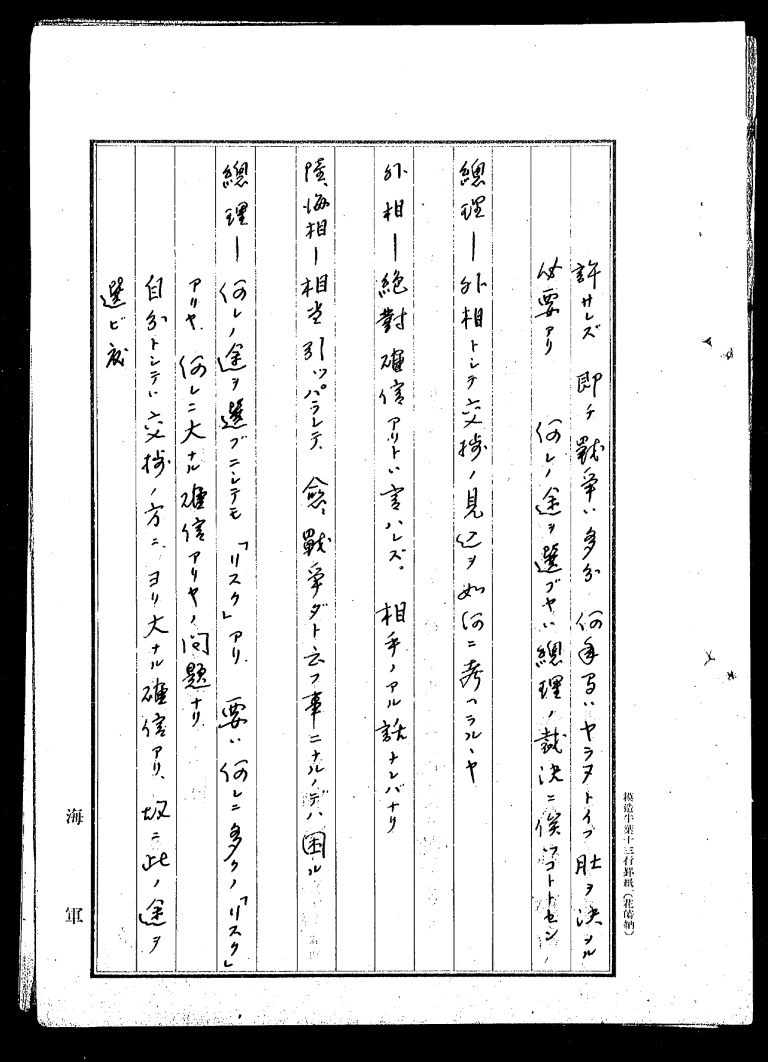 許サレズ 即チ戰爭ハ多分 何年間ハヤラヌトイフ肚ヲ決メル
必要アリ 何レノ途ヲ選ブヤハ總理ノ裁決ニ俟ツコトトセン、
總理ー外相トシテ交捗ノ見込ヲ如何ニ考ヘラルヽヤ
外相ー絶對確信アリトハ言ハレズ。相手ノアル話ナレバナリ
陸、海相ー相当引ッパラレテ、愈々戰爭ダト云フ事ニナルノデハ困ル
總理ー何レノ途ヲ選ブニシテモ「リスク」アリ、要ハ何レニ多クノ「リスク」
アリヤ、何レニ大ナル確信アリヤノ問題ナリ
自分トシテハ交捗ノ方ニ、ヨリ大ナル確信アリ、故ニ此ノ途ヲ
選ビ度
模造半葉十三行罫紙(花崎納)
海軍